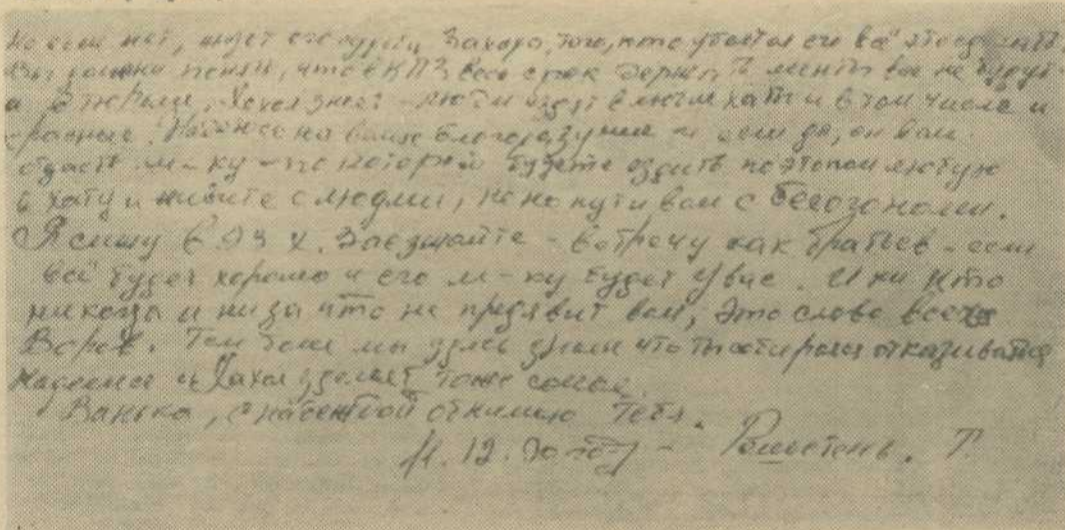 Но если нет, может его Захара, того, кто его всё это
Вы должны понять, что в КПЗ весь срок держать менты вас не будут
а в тюрьме, Хохол знает - люди ездят в любые хаты и в том числе и
красные. Надеюсь на ваше благоразумие и если да, он вам
отдаст м-ку - по которой будете ездить по этапам любую
в хату и живите с людми, но не пути вам с беспозонами.
Я сижу в 93 х. Заезжайте - встречу как братьев - если
всё будет хорошо и его м-ку будет у вас. И ни кто
никогда и ни за что не предявит вам, это слово всех
Воров. Тем более мы здесь что ты отказываться
Надеемся и Хохол зделает тоже самое.
Ванька, с надеждой обнимаю тебя.
11.12.90 год - Г.